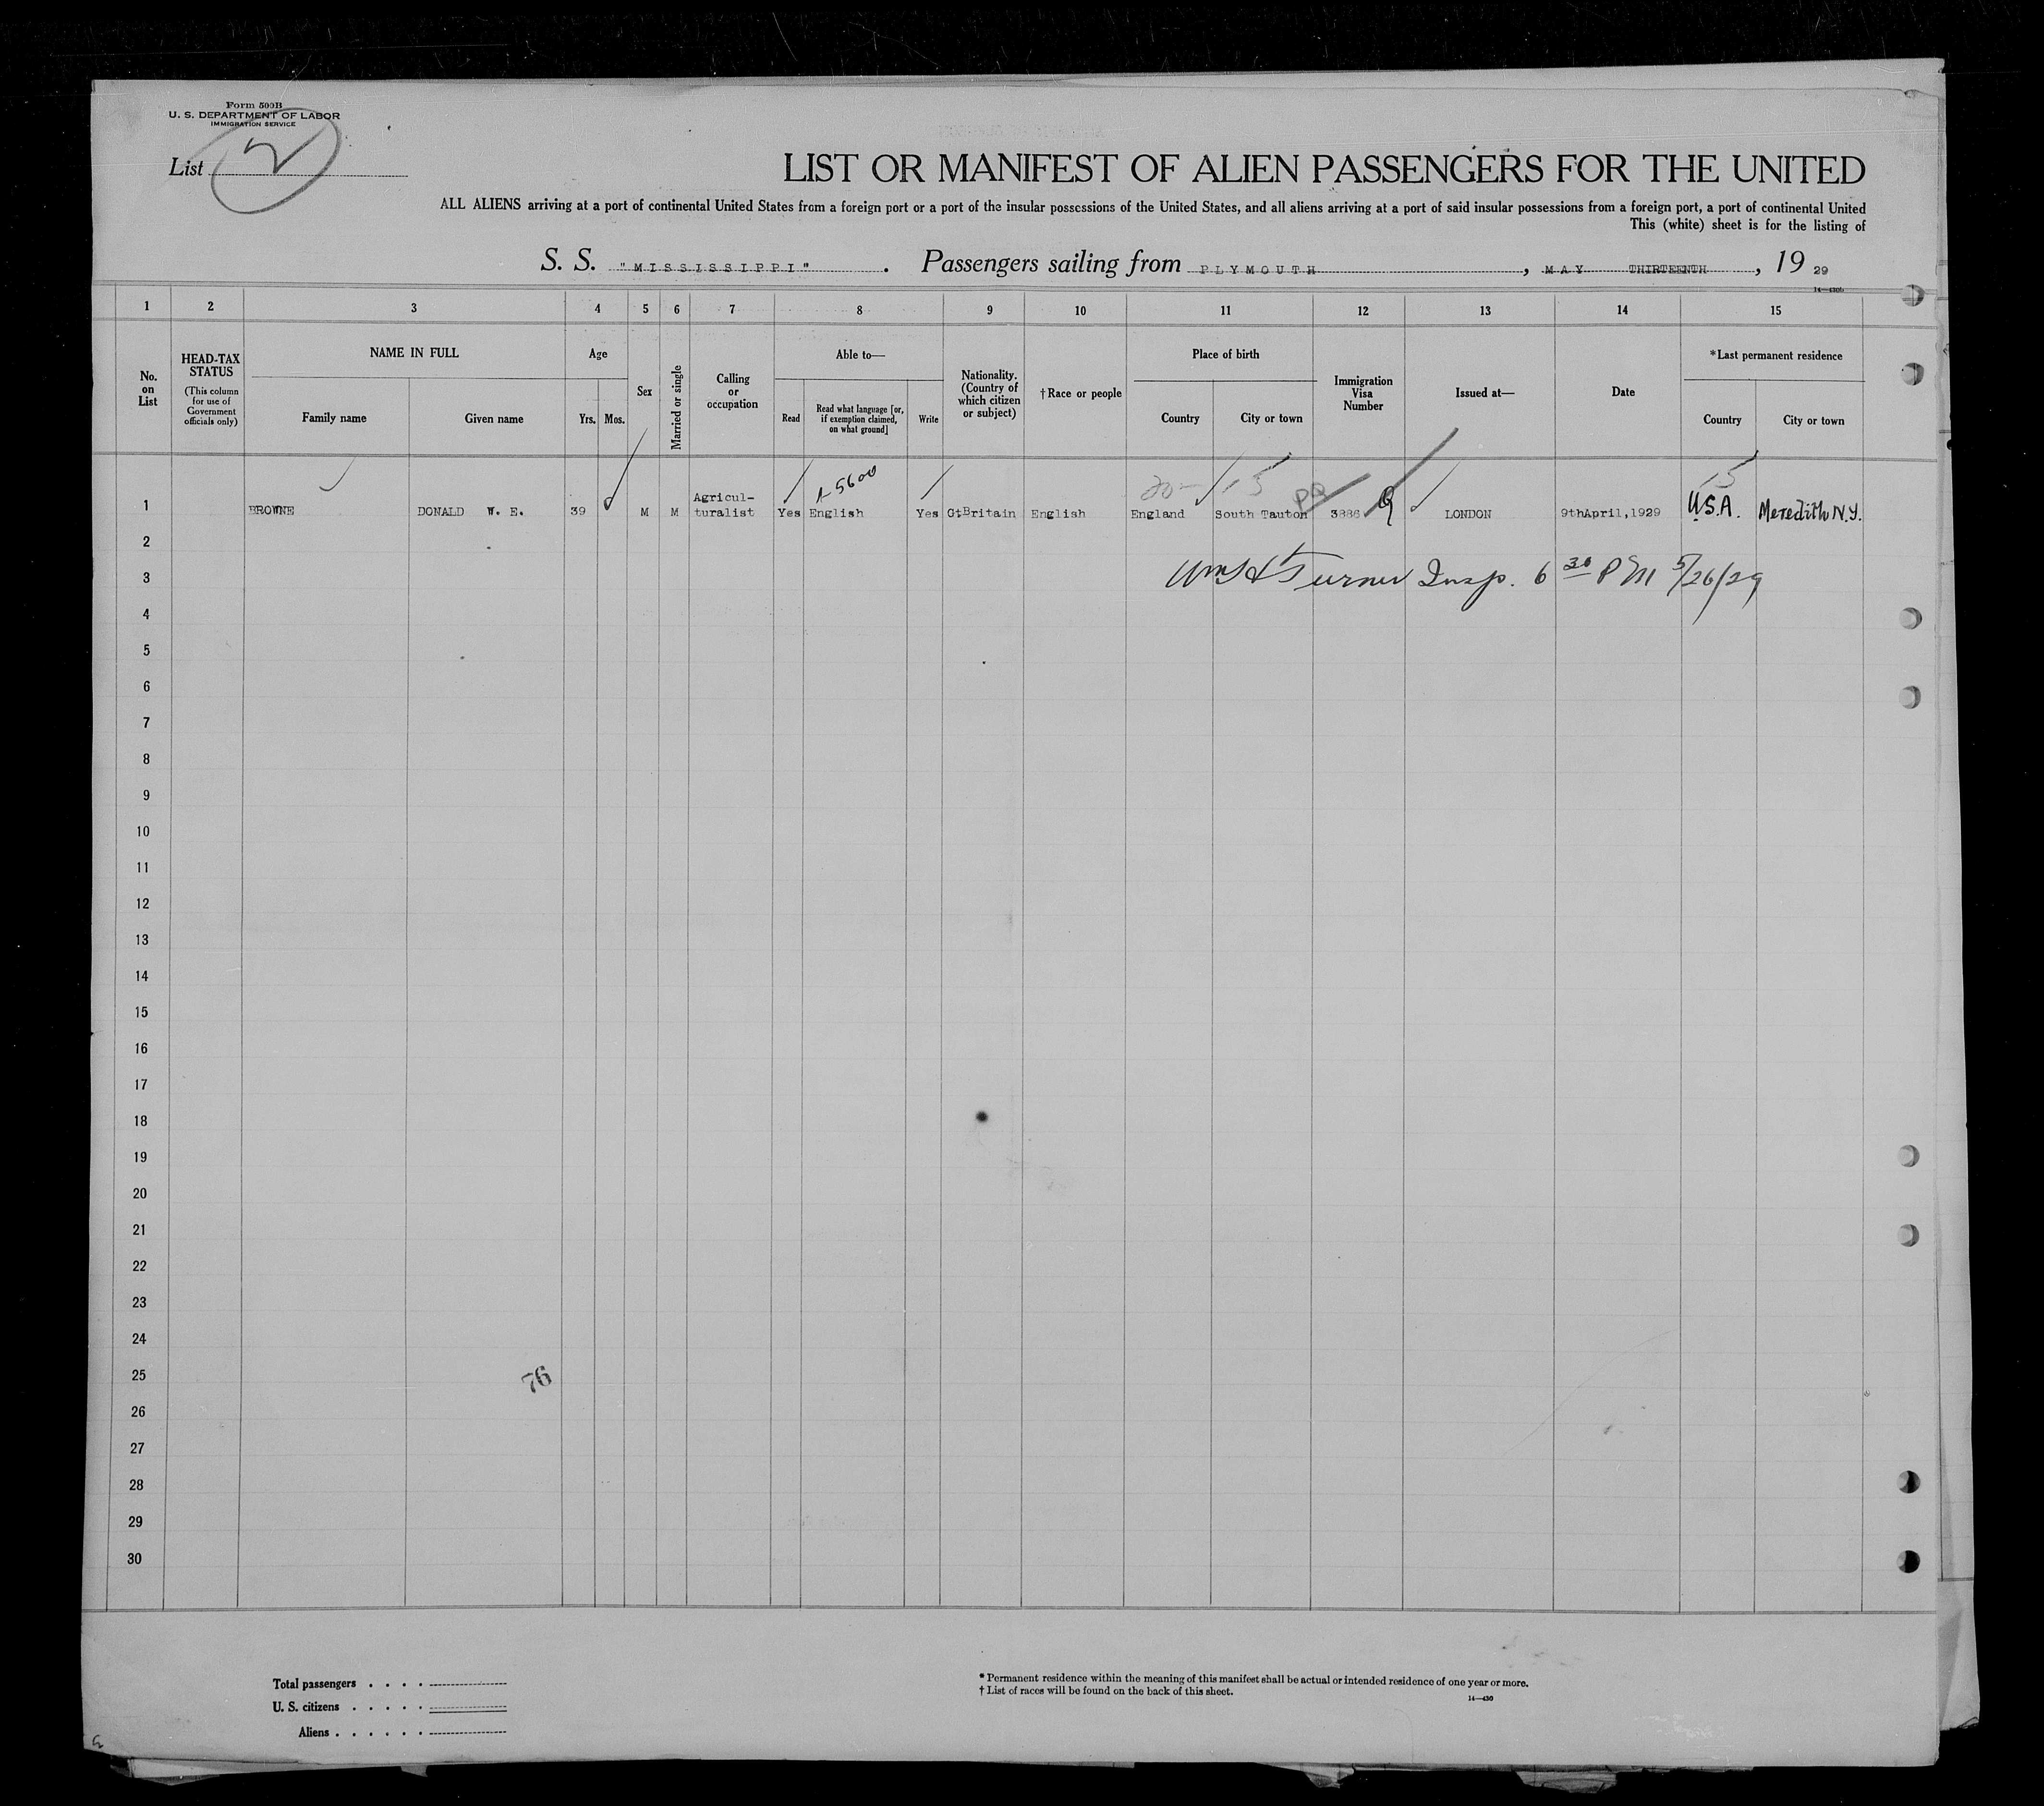 Form 500B
U. S. DEPARTMENT OF LABOR
IMMIGRATION SERVICE
List 2
LIST OR MANIFEST OF ALIEN PASSENGERS FOR THE UNITED
ALL ALIENS arriving at a port of continental United States from a foreign port or a port of the insular possessions of the United States, and all aliens arriving at a port of said insular possessions from a foreign port, a port of continental United
This (white) sheet is for the listing of
S. S. "MISSISSIPPI". Passengers sailing from PLYMOUTH, MAY THIRTEENTH, 19 29
1 2 3 4 5 6 7 8 9 10 11 12 13 14 15
No. on List
HEAD-TAX STATUS
(This column for use of Government officials only)
NAME IN FULL
Family name
Given name
Age
Yrs. Mos.
Sex
Married or single
Calling or occupation
Able to—
Read
Read what language [or, if exemption claimed, on what ground]
Write
Nationality. (Country of which citizen or subject)
†Race or people
Place of birth
Country
City or town
Immigration Visa Number
Issued at—
Date
*Last permanent residence
Country
City or town
1 BROWNE DONALD W. E. 39 M M Agricul-turalist Yes English Yes GtBritain English England South Tauton 3886 LONDON 9thApril,1929 U.S.A. Meredith N.Y.
2
3 Turner Insp. 6 30 PM 5/26/29
4
5
6
7
8
9
10
11
12
13
14
15
16
17
18
19
20
21
22
23
24
25
76
26
27
28
29
30
Total passengers
U. S. citizens
Aliens
* Permanent residence within the meaning of this manifest shall be actual or intended residence of one year or more.
† List of races will be found on the back of this sheet.